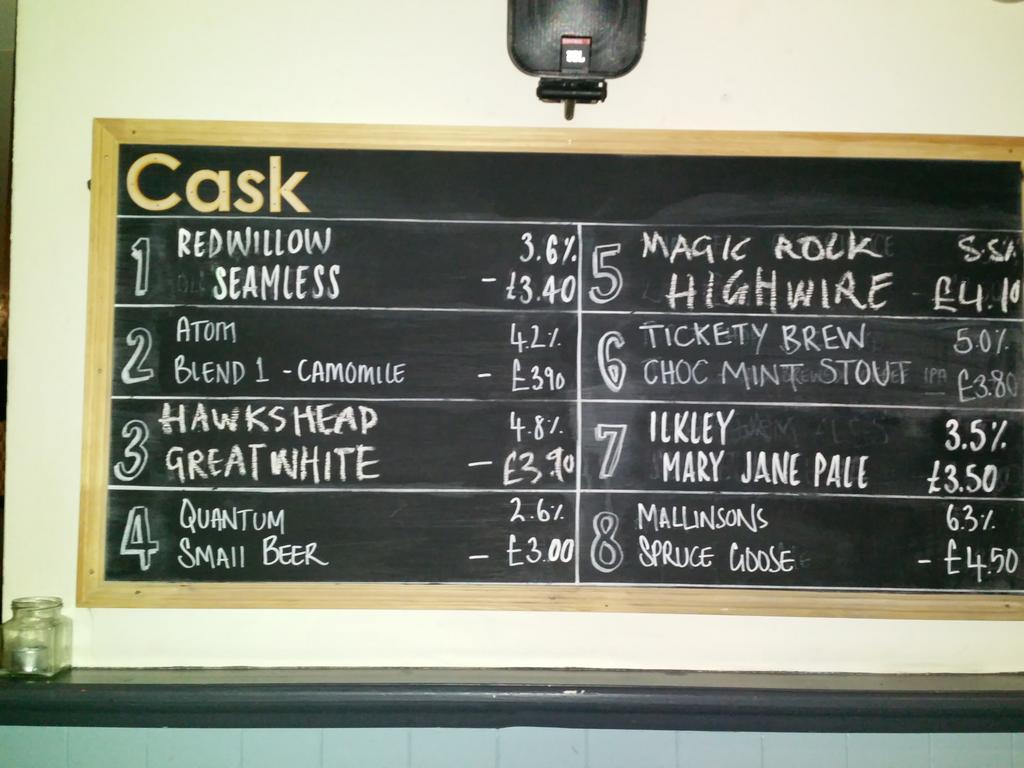 JBL
Cask
1 REDWILLOW 3.6%
SEAMLESS - £3.40
2 ATOM 4.2%
BLEND 1 - CAMOMILE - £3.90
3 HAWKSHEAD 4.8%
GREAT WHITE - £3.90
4 QUANTUM 2.6%
SMALL BEER - £3.00
5 MAGIC ROCK 5.5%
HIGHWIRE £4.10
6 TICKETY BREW 5.0%
CHOC MINT STOUT £3.80
7 ILKLEY 3.5%
MARY JANE PALE £3.50
8 MALLINSONS 6.3%
SPRUCE GOOSE - £4.50